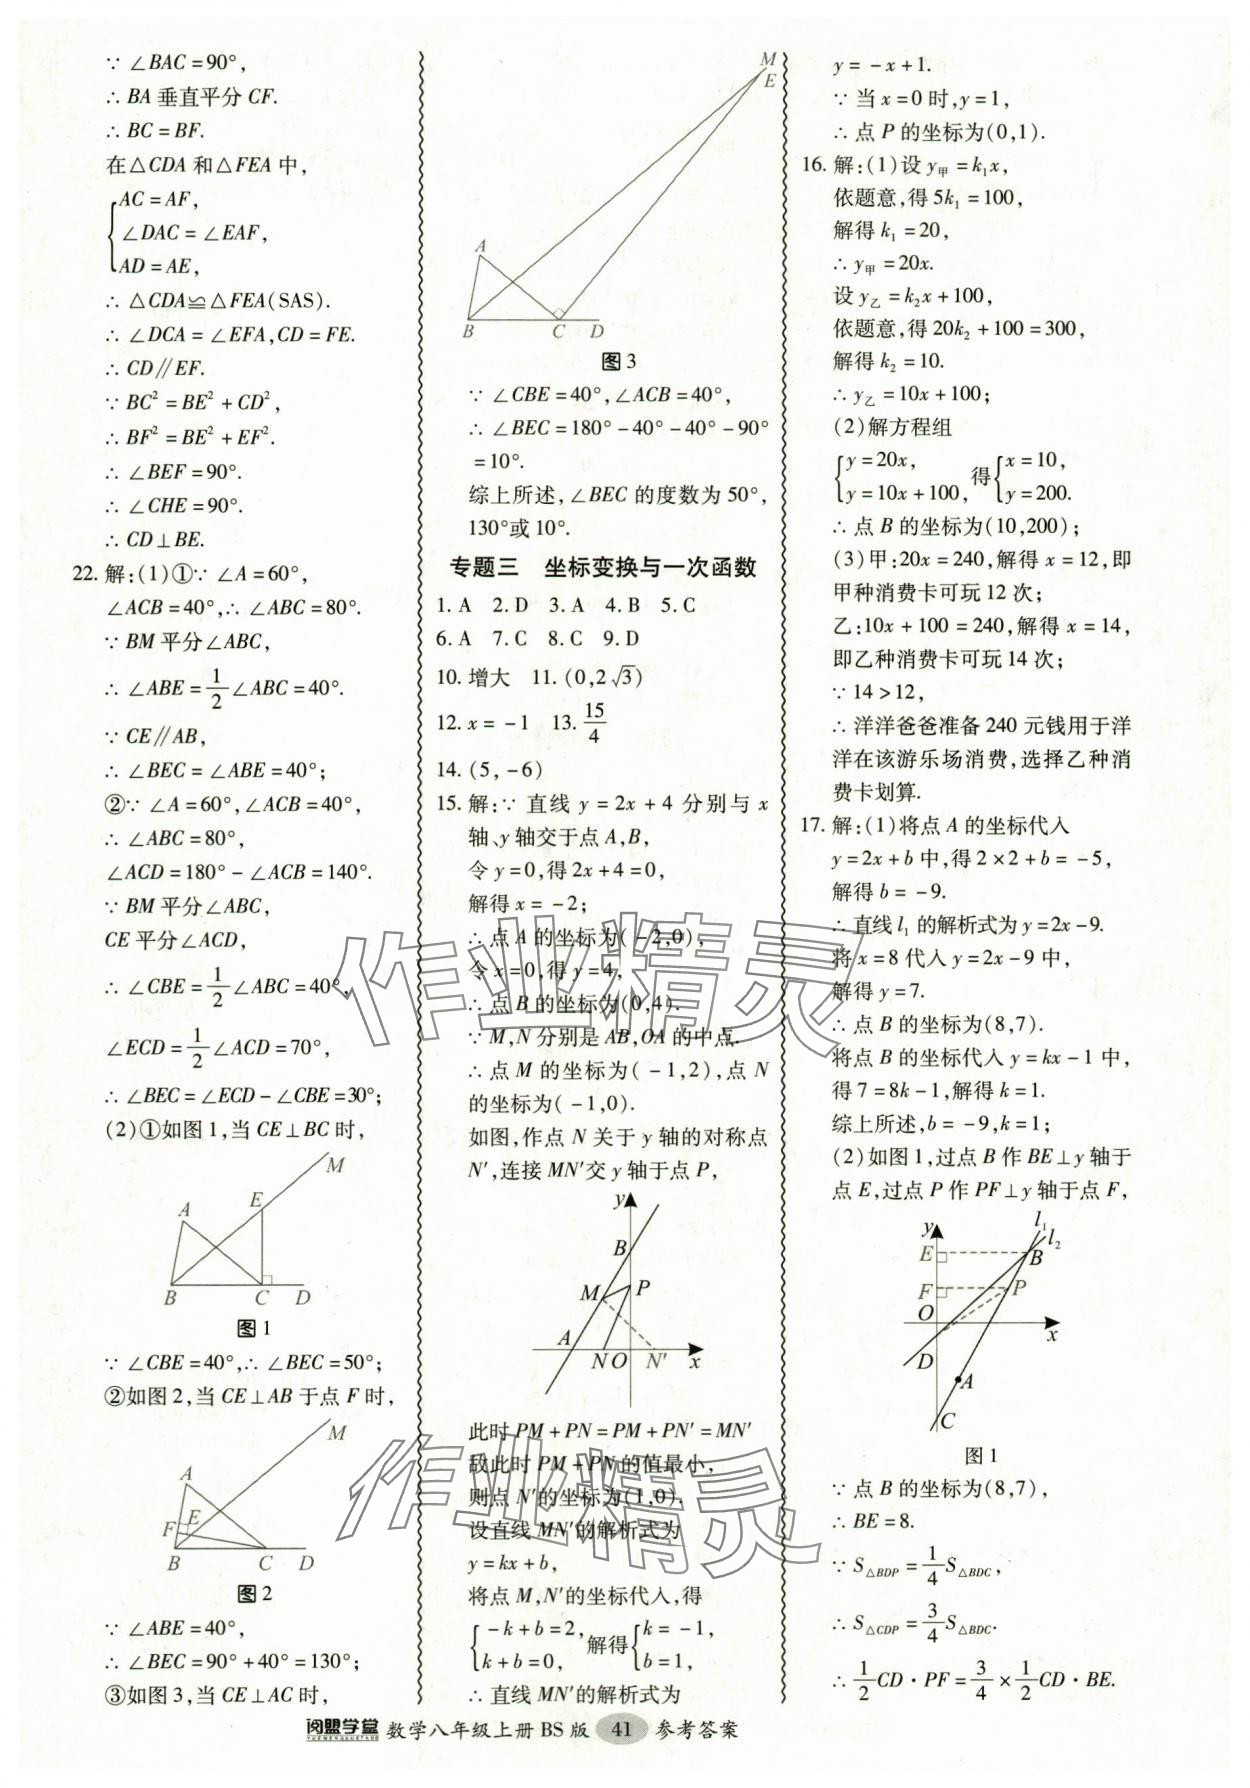 ∵ ∠BAC=90°,
∴ BA 垂直平分 CF.
∴ BC=BF.
在△CDA 和△FEA 中,
AC=AF,
∠DAC=∠EAF,
AD=AE,
∴ △CDA≌△FEA(SAS).
∴ ∠DCA=∠EFA,CD=FE.
∴ CD∥EF.
∵ BC²=BE²+CD²,
∴ BF²=BE²+EF².
∴ ∠BEF=90°.
∴ ∠CHE=90°.
∴ CD⊥BE.
22. 解:(1)①∵ ∠A=60°,
∠ACB=40°,∴ ∠ABC=80°.
∵ BM 平分∠ABC,
∴ ∠ABE=1/2∠ABC=40°.
∵ CE∥AB,
∴ ∠BEC=∠ABE=40°;
②∵ ∠A=60°,∠ACB=40°,
∴ ∠ABC=80°,
∠ACD=180°-∠ACB=140°.
∵ BM 平分∠ABC,
CE 平分∠ACD,
∴ ∠CBE=1/2∠ABC=40°,
∠ECD=1/2∠ACD=70°,
∴ ∠BEC=∠ECD-∠CBE=30°;
(2)①如图 1,当 CE⊥BC 时,
M
E
A
B C D
图 1
∵ ∠CBE=40°,∴ ∠BEC=50°;
②如图 2,当 CE⊥AB 于点 F 时,
M
A
E
F
B C D
图 2
∵ ∠ABE=40°,
∴ ∠BEC=90°+40°=130°;
③如图 3,当 CE⊥AC 时,
M
E
A
B C D
图 3
∵ ∠CBE=40°,∠ACB=40°,
∴ ∠BEC=180°-40°-40°-90°
=10°.
综上所述,∠BEC 的度数为 50°,
130°或 10°.
专题三 坐标变换与一次函数
1. A 2. D 3. A 4. B 5. C
6. A 7. C 8. C 9. D
10. 增大 11. (0,2√3)
12. x=-1 13. 15/4
14. (5,-6)
15. 解:∵ 直线 y=2x+4 分别与 x
轴、y 轴交于点 A,B,
令 y=0,得 2x+4=0,
解得 x=-2;
∴ 点 A 的坐标为(-2,0),
令 x=0,得 y=4,
∴ 点 B 的坐标为(0,4).
∵ M,N 分别是 AB,OA 的中点.
∴ 点 M 的坐标为(-1,2),点 N
的坐标为(-1,0).
如图,作点 N 关于 y 轴的对称点
N′,连接 MN′交 y 轴于点 P,
y
B
M P
A
N O N′ x
此时 PM+PN=PM+PN′=MN′
故此时 PM+PN 的值最小,
则点 N′的坐标为(1,0).
设直线 MN′的解析式为
y=kx+b,
将点 M,N′的坐标代入,得
-k+b=2,
k+b=0,
解得
k=-1,
b=1,
∴ 直线 MN′的解析式为
y=-x+1.
∵ 当 x=0 时,y=1,
∴ 点 P 的坐标为(0,1).
16. 解:(1)设 y甲=k₁x,
依题意,得 5k₁=100,
解得 k₁=20,
∴ y甲=20x.
设 y乙=k₂x+100,
依题意,得 20k₂+100=300,
解得 k₂=10.
∴ y乙=10x+100;
(2)解方程组
y=20x,
y=10x+100,
得
x=10,
y=200.
∴ 点 B 的坐标为(10,200);
(3)甲:20x=240,解得 x=12,即
甲种消费卡可玩 12 次;
乙:10x+100=240,解得 x=14,
即乙种消费卡可玩 14 次;
∵ 14>12,
∴ 洋洋爸爸准备 240 元钱用于洋
洋在该游乐场消费,选择乙种消
费卡划算.
17. 解:(1)将点 A 的坐标代入
y=2x+b 中,得 2×2+b=-5,
解得 b=-9.
∴ 直线 l₁ 的解析式为 y=2x-9.
将 x=8 代入 y=2x-9 中,
解得 y=7.
∴ 点 B 的坐标为(8,7).
将点 B 的坐标代入 y=kx-1 中,
得 7=8k-1,解得 k=1.
综上所述,b=-9,k=1;
(2)如图 1,过点 B 作 BE⊥y 轴于
点 E,过点 P 作 PF⊥y 轴于点 F,
y l₁ l₂
E B
F P
O x
D
A
C
图 1
∵ 点 B 的坐标为(8,7),
∴ BE=8.
∵ S△BDP=1/4 S△BDC,
∴ S△CDP=3/4 S△BDC.
∴ 1/2 CD·PF=3/4×1/2 CD·BE.
作业精灵
作业精灵
阅盟学堂 YUEMENGXUETANG 数学八年级上册 BS 版 41 参考答案